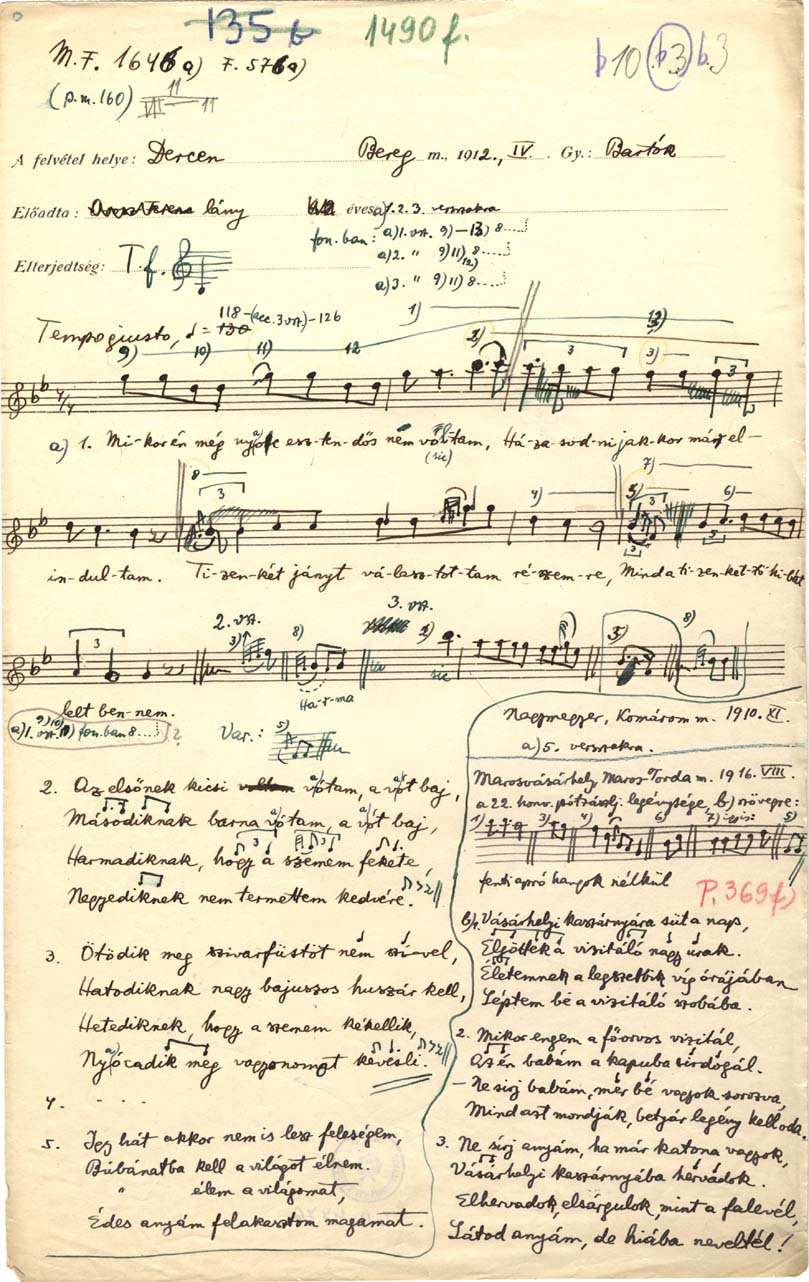 135 b 1490 f.
M.F. 1646 a) F. 576 a) b 10 b 3 b. 3
(p.m. 160) VII 11 11
A felvétel helye: Dercen Bereg m., 1912., IV. Gy.: Bartók
Előadta: lány éves a) 1. 2. 3. versszakra
fon. ban: a) 1. vsz. 9) – 13) 8
a) 2. " 9) 11) 8
Elterjedtség: T. f. a) 3. " 9) 11) 8
118 – (acc. 3. vsz.) – 126
Tempo giusto, = 130
1) 2) 3)
9) 10) 11) 12
4/4 3 3
a) 1. Mi-kor én még nyolc esz-ten-dős nem vól-tam, Há-za-sod-ni jak-kor már el-
(sic)
8 3 4) 5) 7) 6)
in-dul-tam. Ti-zen-két jányt vá-lasz-tot-tam ré-szem-re, Mind a ti-zen-két-ti hi-bát
3 2. vsz. 3) 8) 3. vsz. 1) sic 5) 8)
Há-r-ma
lelt ben-nem.
a) 1. vsz. 9) 10) fon. ban 8 ?
Var.: 5)
Nagymegyer, Komárom m. 1910. XI.
a) 5. versszakra.
2. Az elsőnek kicsi voltam vótam, a vót baj,
Másodiknak barna vótam, a vót baj,
Harmadiknak, hogy a szemem fekete,
Negyediknek nem termettem kedvére.
3. Ötödik meg szivarfüstöt nem szível,
Hatodiknak nagy bajuszos huszár kell,
Hetediknek, hogy a szemem kékellik,
Nyócadik még vagyonomat kevesli.
4. . . .
5. Így hát akkor nem is lesz feleségem,
Búbánatba kell a világot élnem.
" élem a világomat,
Édes anyám felakasztom magamat.
Marosvásárhely Maros-Torda m. 1916. VIII.
a 22. honv. pótzászlj. legénysége, b) szövegre:
1) 3) 4) 6) 7) 5)
fenti apró hangok nélkül
P. 369 f)
b) 1. Vásárhelyi kaszárnyára süt a nap,
Eljöttek a vizitáló nagy urak.
Életemnek a legszebbik víg órájában
Léptem bé a vizitáló szobába.
2. Mikor engem a főorvos vizitál,
Az én babám a kapuba sírdogál.
– Ne sírj babám, mer bé vagyok sorozva,
Mind azt mondják, betyár legény kell oda.
3. Ne sírj anyám, ha már katona vagyok,
Vásárhelyi kaszárnyába hervadok.
Elhervadok, elsárgulok, mint a falevél,
Látod anyám, de hiába neveltél!